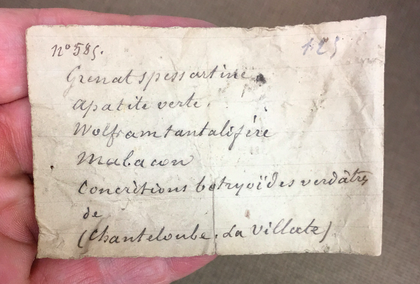 n° 585.
+25
Grenat spessartine
apatite verte.
Wolfram tantalifére
Malacon
Concrétions botryoïdes verdâtres
de
(Chanteloube. La Villate)